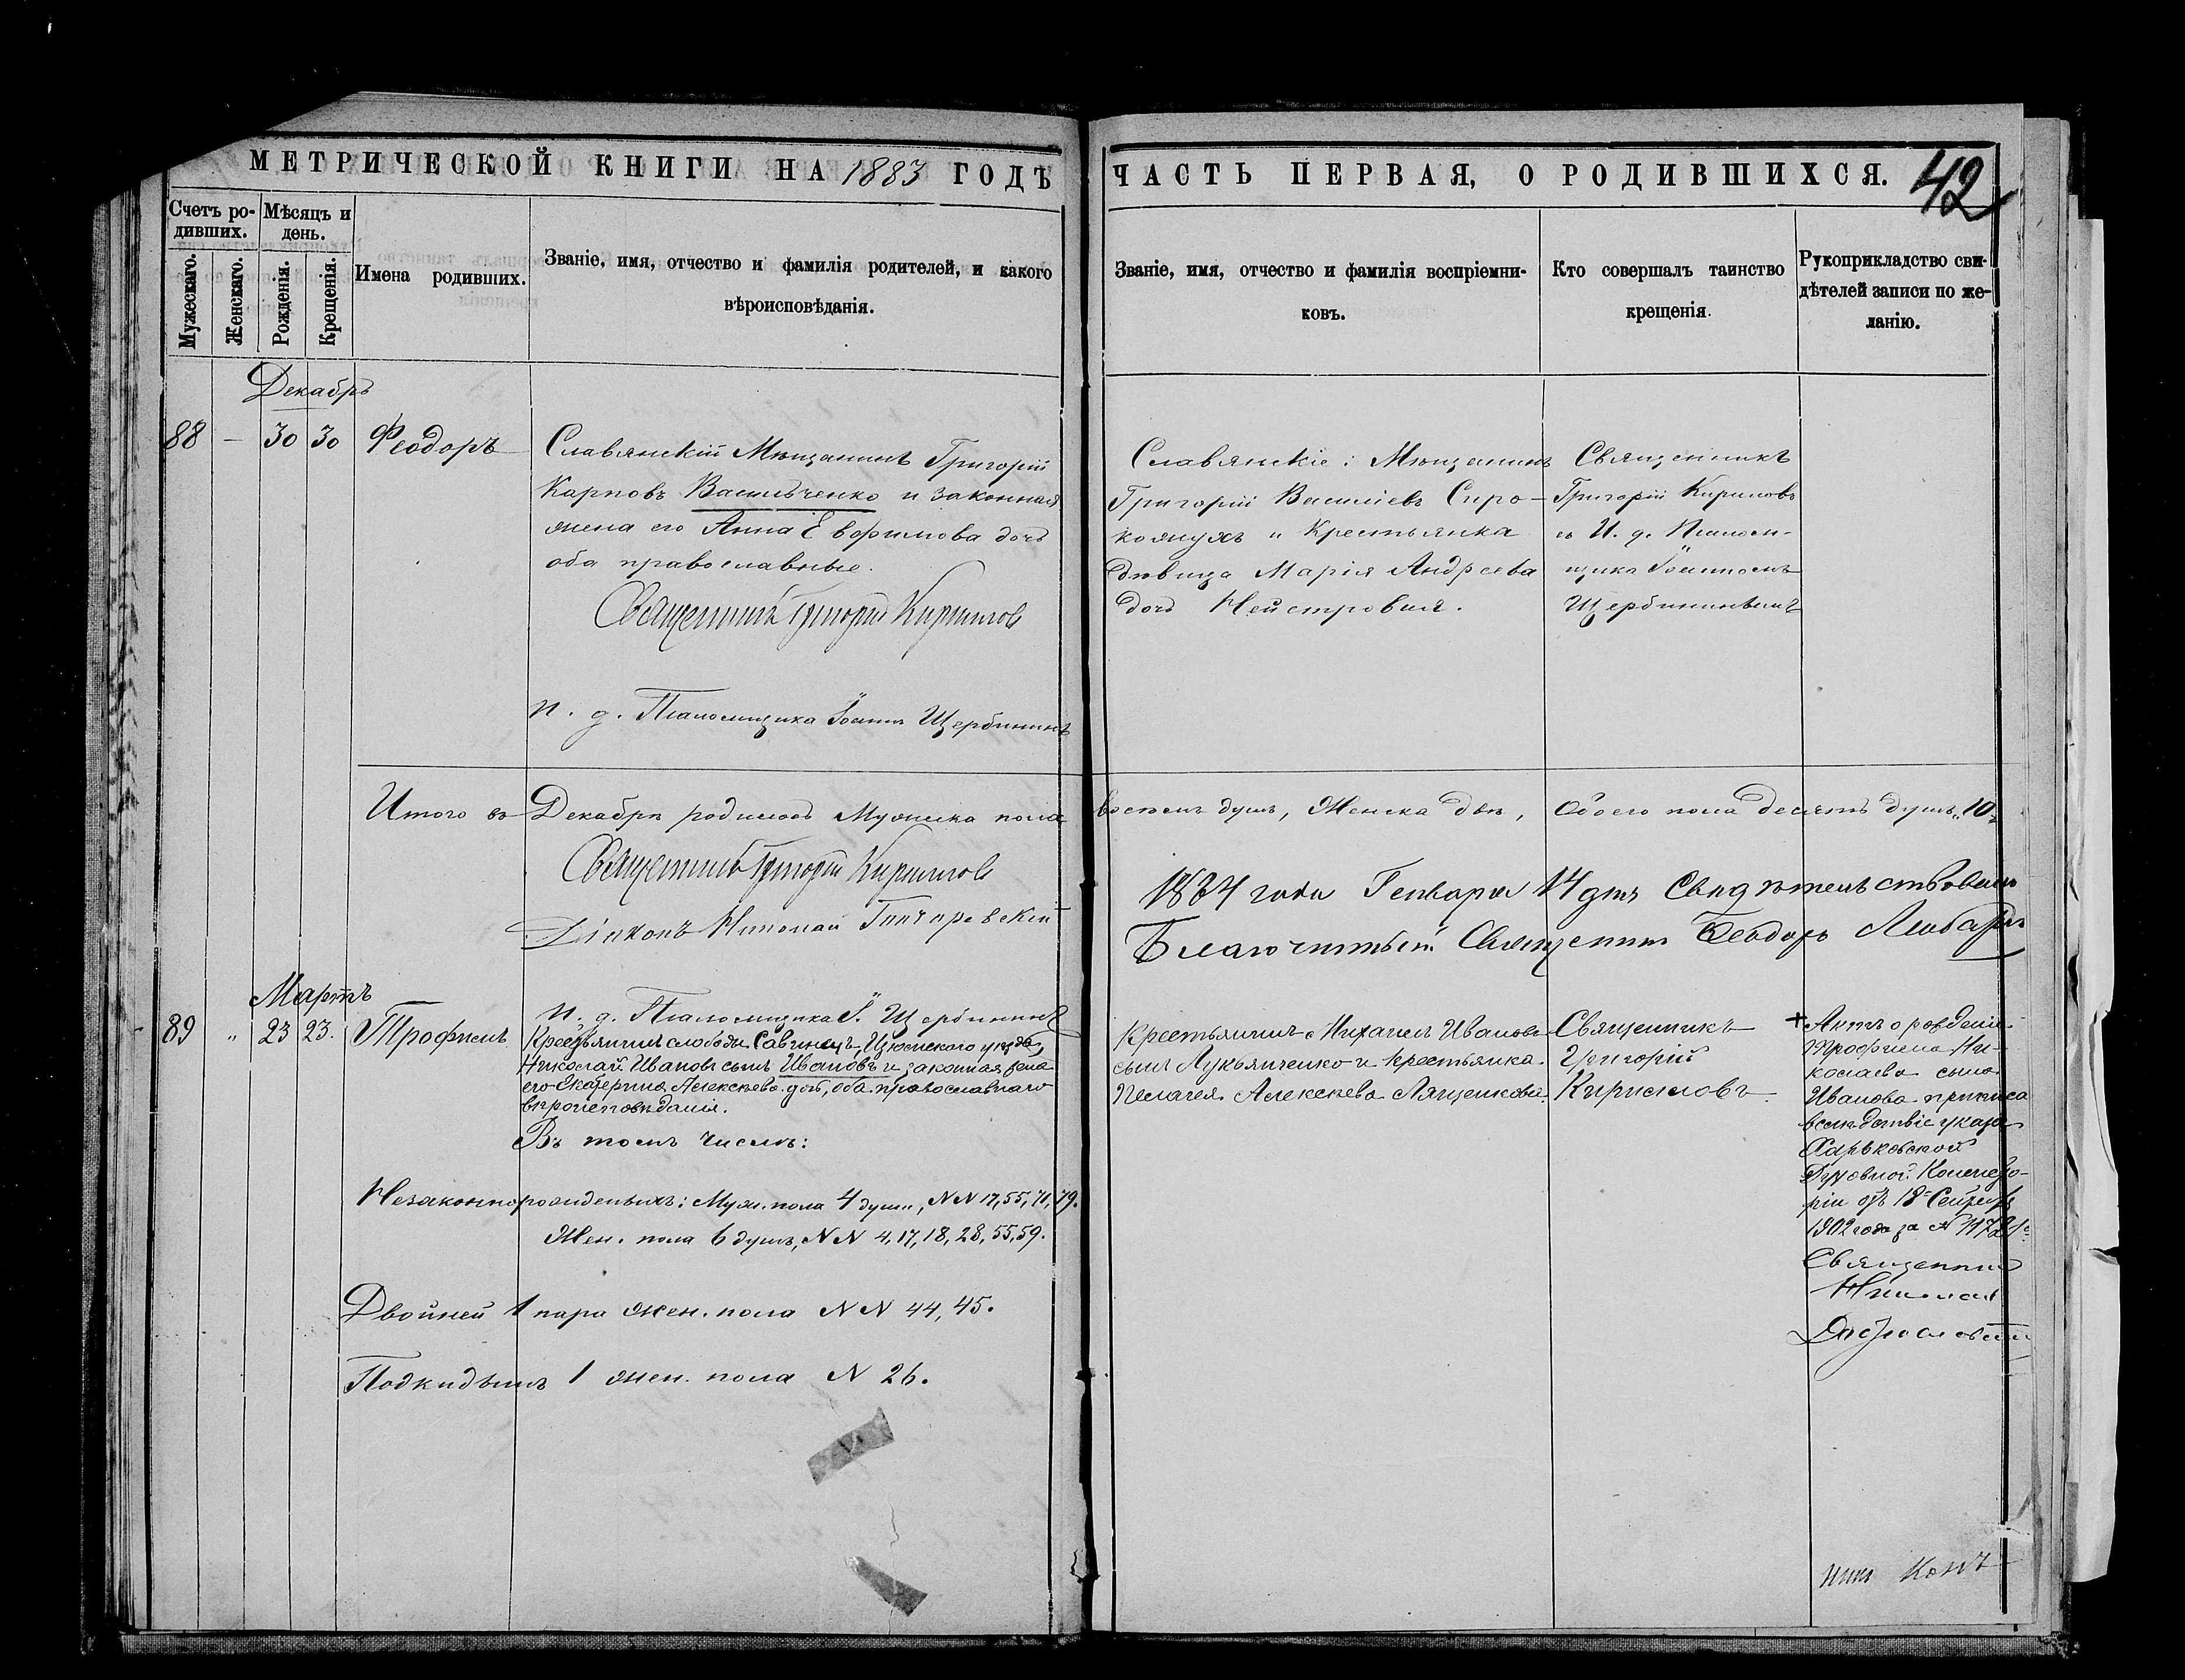 МЕТРИЧЕСКОЙ КНИГИ НА 1883 ГОДЪ
Счетъ ро-
дившихъ.
Мѣсяцъ и
день.
Мужескаго.
Женскаго.
Рожденія.
Крещенія.
Имена родившихъ.
Званіе, имя, отчество и фамилія родителей, и какого
вѣроисповѣданія.
Декабрь
88 — 30 30 Ѳеодоръ
Славянскій Мѣщанинъ Григорій
Карповъ Васильченко и законная
жена его Анна Евфимова дочь
оба православные.
Священникъ Григорій Кириллов
И. д. Псаломщика Іоаннъ Щербининъ
Итого въ Декабрѣ родилось Мужеска пола
Священникъ Григорій Кириллов
Діаконъ Николай
И. д. Псаломщика І. Щербининъ
Мартъ
89 " 23 23. Трофимъ
Крестьянинъ слободы Савинецъ, Изюмскаго уѣзда,
Николай Ивановъ сынъ Ивановъ и законная жена
его Екатерина Алексѣева дочь, оба православнаго
вѣроисповѣданія.
Въ томъ числѣ:
Незаконнорожденныхъ: Муж. пола 4 души, N N 17, 55, 71, 79.
Жен. пола 6 душъ, N N 4, 17, 18, 28, 55, 59.
Двойней 1 пара жен. пола N N 44, 45.
Подкидышъ 1 жен. пола N 26.
ЧАСТЬ ПЕРВАЯ, О РОДИВШИХСЯ.
42
Званіе, имя, отчество и фамилія воспріемни-
ковъ.
Кто совершалъ таинство
крещенія.
Рукоприкладство сви-
дѣтелей записи по же-
ланію.
Славянскіе: Мѣщанинъ
Григорій Василіевъ Сиро-
кожухъ и Крестьянка
дѣвица Марія Андреева
дочь
Священникъ
Григорій Кириловъ
съ И. д. Псалом-
щика Іоанномъ
Щербининымъ
восемь душъ, Женска двѣ, Обоего пола десять душъ. 10
1884 года Генваря 14 дня Свидѣтельствовалъ
Благочинный Священникъ Ѳеодоръ
Крестьянинъ Михаилъ Ивановъ
сынъ Лукьянченко и крестьянка
Пелагея Алексѣева Лященкова.
Священникъ
Григорій
Кирилловъ.
Актъ о рожденіи
Трофима Ни-
колаева сына
Иванова
вслѣдствіе указа
Харьковской
Духовной Консисто-
ріи отъ 18 Сентября
1902 года за N 11721
Священникъ
Николай